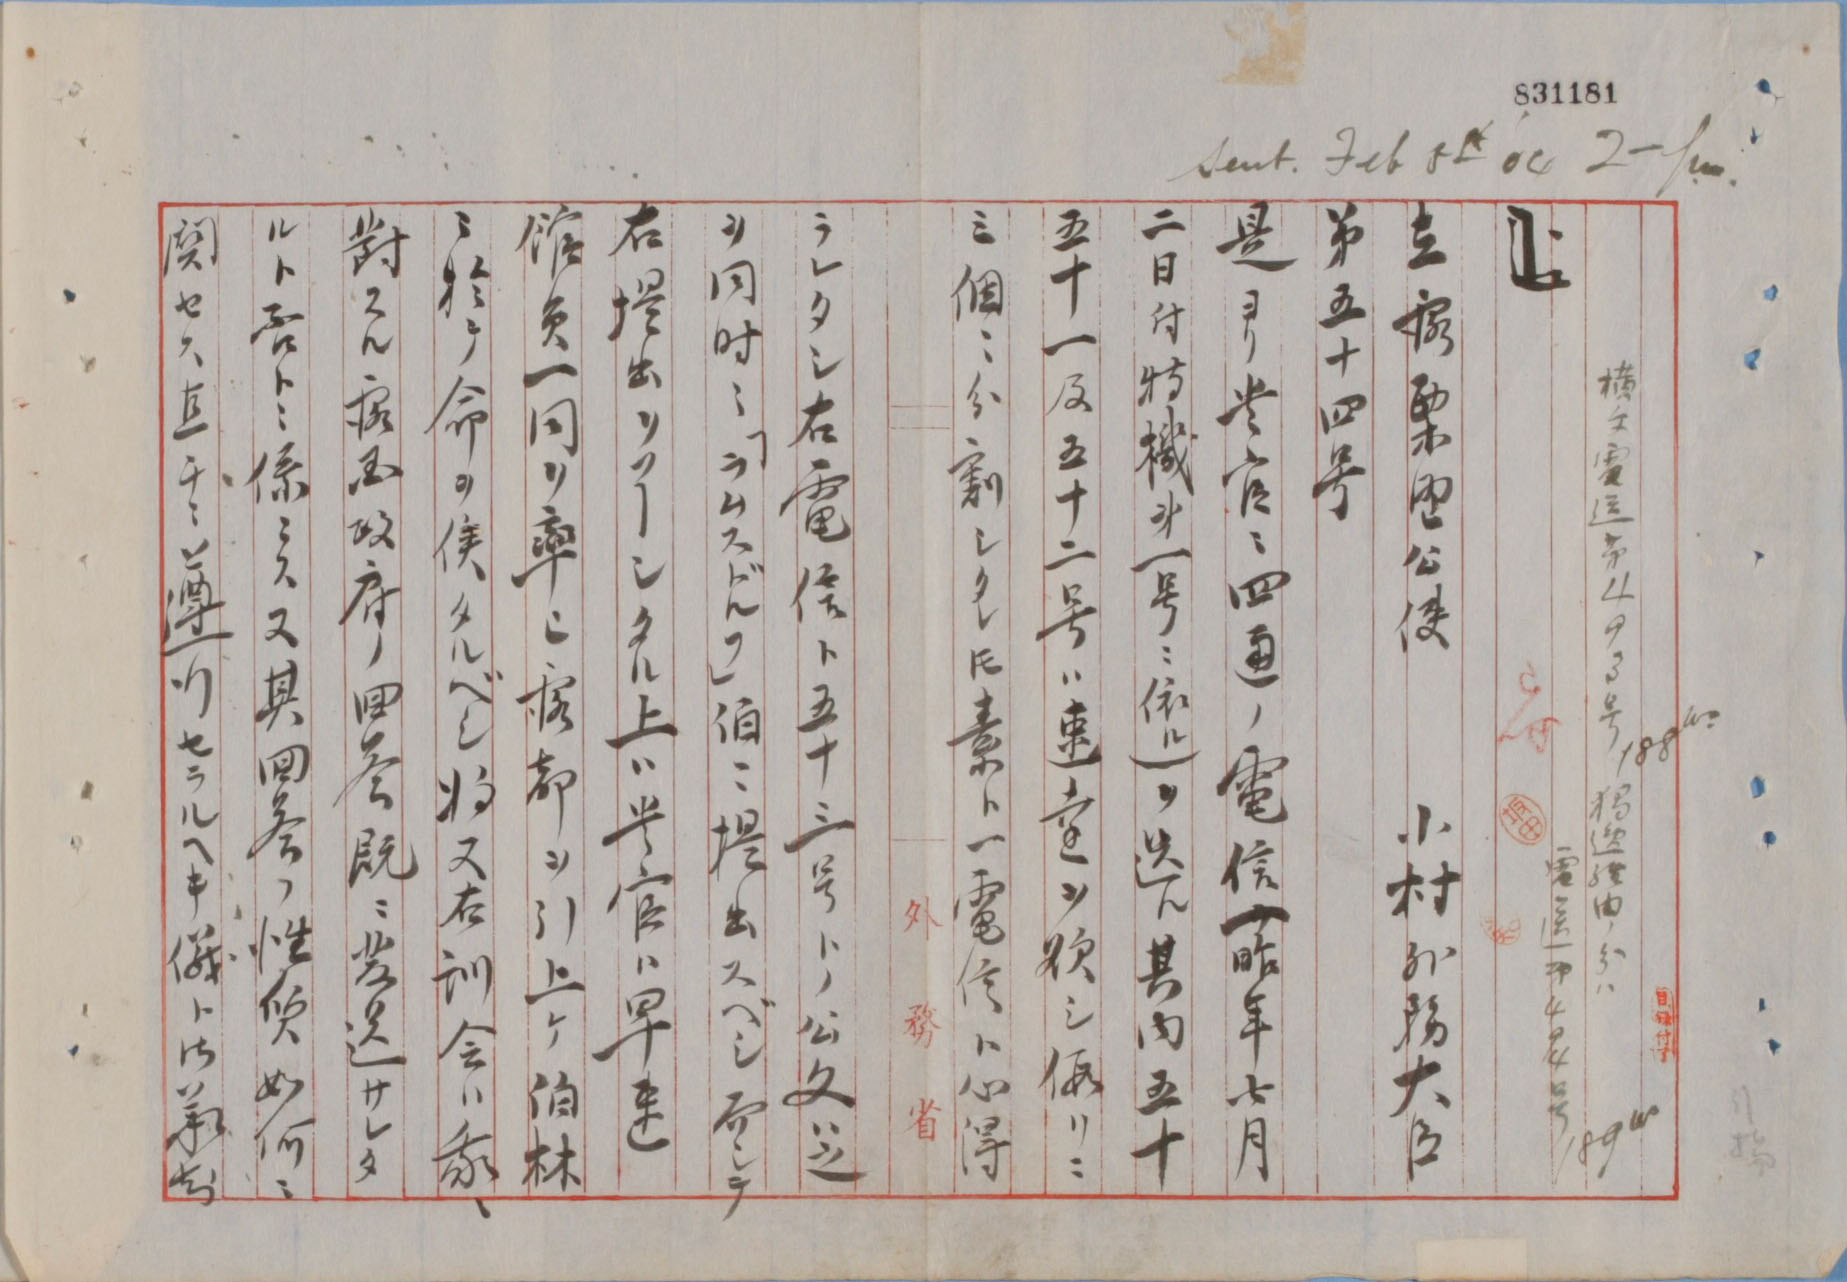 831181
Sent. Feb 5th '04 2- p.m.
横文電送第493号 188ws
独逸経由ノ分ハ
電送第494号 189ws
在露栗野公使 小村外務大臣
第五十四号
是ヨリ貴官ニ四通ノ電信(昨年七月
二日付特機第一号ニ依ル)ヲ送ル其内五十
五十一及五十二号ハ速達ヲ欲シ仮リニ
三個ニ分割シタレ𪜈素ト一電信ト心得
ラレタシ右電信ト五十三号トノ公文ハ之
ヲ同時ニ「ラムスドルフ」伯ニ提出スベシ而シテ
右提出ヲ了シタル上ハ貴官ハ早速
館員一同ヲ率ヒ露都ヲ引上ケ伯林
ニ於テ命ヲ俟タルベシ将又右訓令ハ我ニ
対スル露国政府ノ回答既ニ発送サレタ
ルト否トニ係ラス又其回答ノ性質如何ニ
関セス直チニ遵行セラルヘキ儀ト御承知
外務省